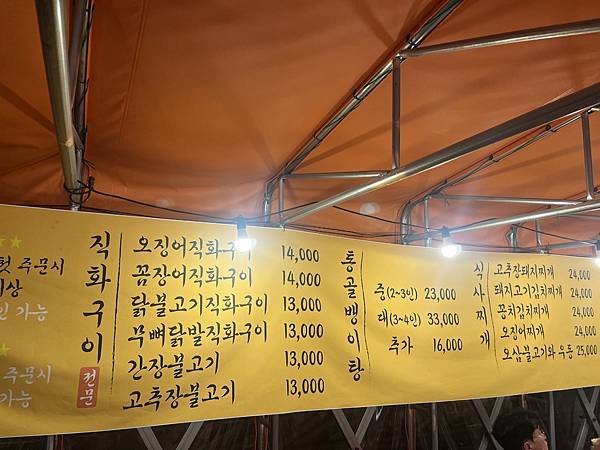 첫 주문시
이상
가능
주문시
가능
직화구이
전문
오징어직화구이 14,000
꼼장어직화구이 14,000
닭불고기직화구이 13,000
무뼈닭발직화구이 13,000
간장불고기 13,000
고추장불고기 13,000
통골뱅이탕
중(2~3인) 23,000
대(3~4인) 33,000
추가 16,000
식사찌개
고추장돼지찌개 24,000
돼지고기김치찌개 24,000
꽁치김치찌개 24,000
오징어찌개 24,000
오삼불고기와 우동 25,000